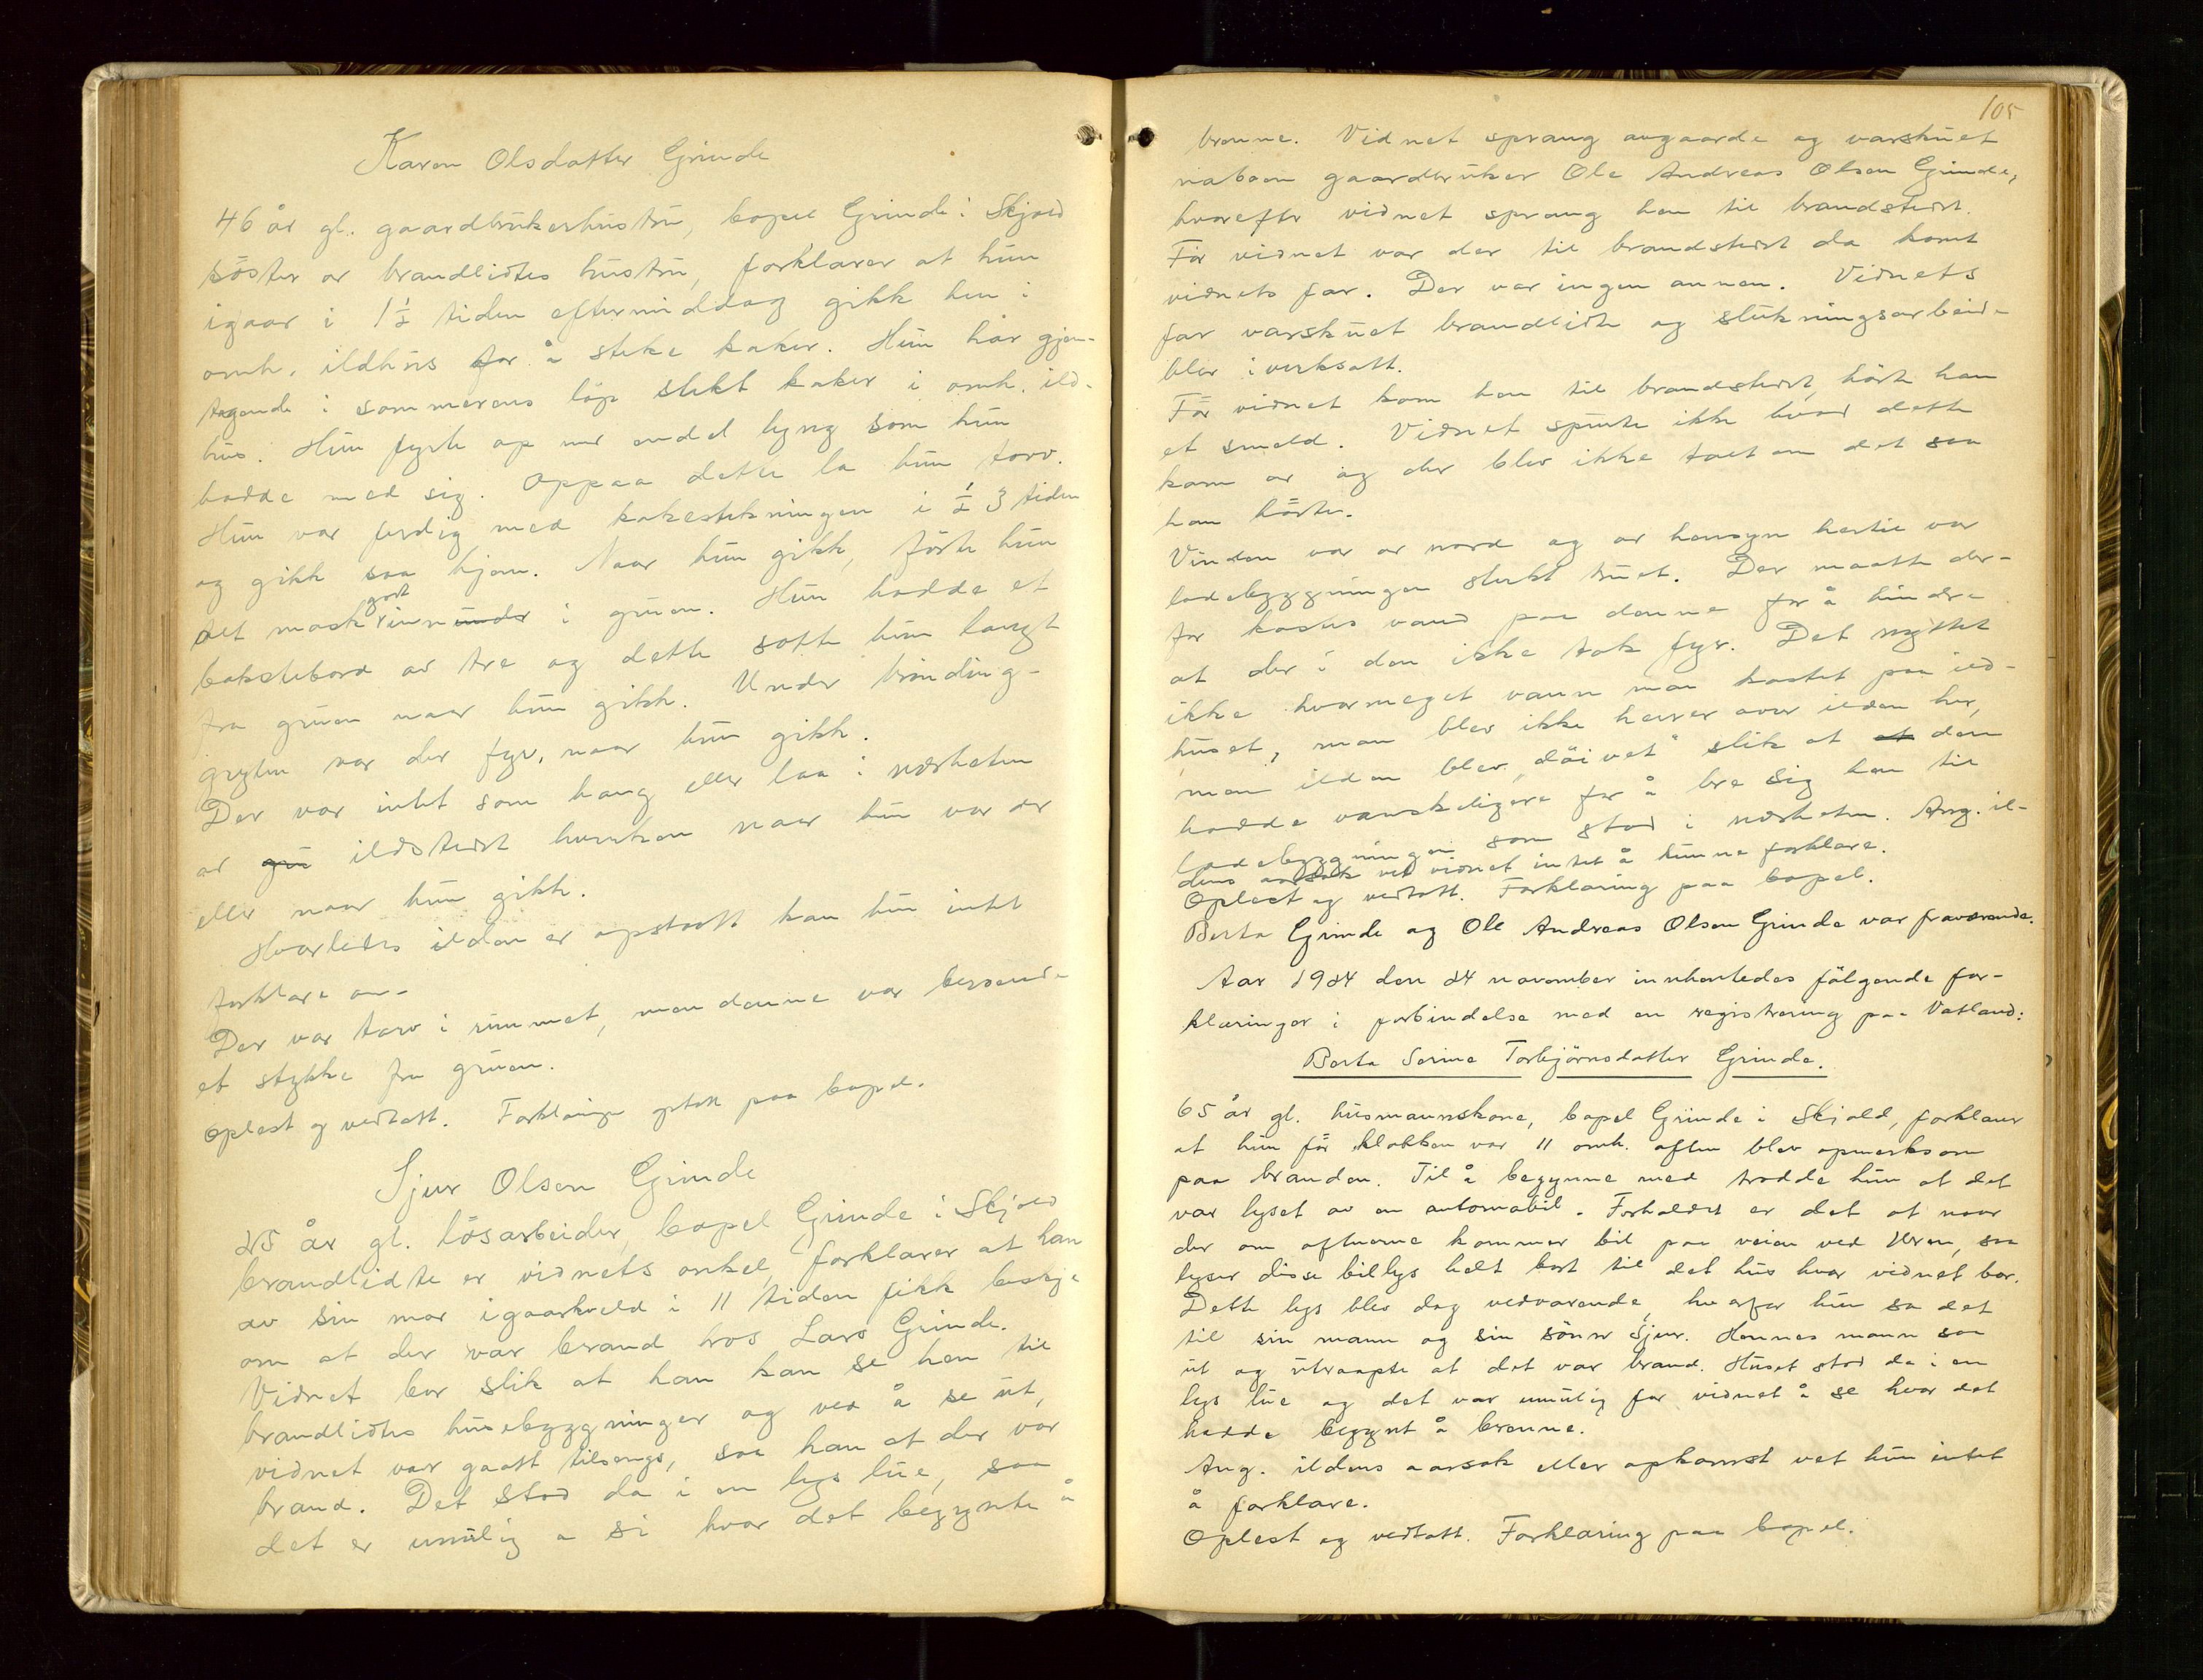 Karen Olsdatter Grinde
46 år gl. gaardbrukerhustru, bopel Grinde i Skjold
söster av brandlidtes hustru, forklarer at hun
igaar i 1½ tiden eftermiddag gikk hen i
omh. ildhus for å steke kaker. Hun har gjen-
tagende i sommerens löp stekt kaker i omh. ild-
hus. Hun fyrte op med endel lyng som hun
hadde med sig. Oppaa dette la hun torv.
Hun var ferdig med kakestekningen i ½ 3 tiden
og gikk saa hjem. Naar hun gikk, förte hun
alt mosk godt inn under i gruen. Hun hadde et
bakstebord av tre og dette satte hun langt
fra gruen naar hun gikk. Under
gryten var der fyr, naar hun gikk.
Der var intet som hang eller laa i nærheten
av gru ildstedet hverken naar hun var der
eller naar hun gikk.
Hvorledes ilden er opstaatt kan hun intet
forklare om.
Der var torv i rummet, men denne var beroende
et stykke fra gruen.
Oplest og vedtatt. Forklaringen optatt paa bopel.
Sjur Olsen Grinde
25 år gl. lösarbeider, bopel Grinde i Skjold
brandlidte er vidnets onkel, forklarer at han
av sin mor igaarkveld i 11 tiden fikk beskje
om at der var brand hos Lars Grinde.
Vidnet bor slik at han kan se hen til
brandlidtes husebyggninger og ved å se ut,
vidnet var gaatt tilsengs, saa han at der var
brand. Det stod da i en lys lue, saa
det er umulig a si hvor det begynte å
105
brenne. Vidnet sprang avgaarde og varskuet
naboen gaardbruker Ole Andreas Olsen Grinde,
hvorefter vidnet sprang hen til brandstedet.
För vidnet var der til brandstedet da komt
vidnets far. Der var ingen annen. Vidnets
far varskuet brandlidte og slukningsarbeide
blev iverksatt.
För vidnet kom hen til brandstedet, hörte han
et smeld. Vidnet spurte ikke hvad dette
kom av og der blev ikke talt om det saa
han hörte.
Vinden var av nord og av hensyn hertil var
ladebyggningen sterkt truet. Der maatte der-
for kastes vand paa denne for å hindre
at der i den ikke tok fyr. Det nyttet
ikke hvormeget vann man kastet paa ild-
huset, man blev ikke herrer over ilden her,
men ilden blev "döivet" slik at at den
hadde vanskeligere for å bre sig hen til
ladebyggningen som stod i nærheten. Ang. il-
dens aarsak vet vidnet intet å kunne forklare.
Oplest og vedtatt. Forklaring paa bopel.
Berta Grinde og Ole Andreas Olsen Grinde var fraværende.
Aar 1924 den 24 november innhentedes fölgende for-
klaringer i forbindelse med en registrering paa Vatland:
Berta Serine Torbjörnsdatter Grinde.
65 år gl. husmannskone, bopel Grinde i Skjold, forklarer
at hun för klokken var 11 omh. aften blev opmerksom
paa branden. Til å begynne med trodde hun at det
var lyset av en automobil. Forholdet er det at naar
der om aftnerne kommer bil paa veien ved Uren, saa
lyser disse billys helt bort til det hus hvor vidnet bor.
Dette lys blev dog vedvarende, hvorfor hun sa det
til sin mann og sin sönn Sjur. Hennes mann saa
ut og utraapte at det var brand. Huset stod da i en
lys lue og det var umulig for vidnet å se hvor det
hadde begynt å brenne.
Ang. ildens aarsak eller opkomst vet hun intet
å forklare.
Oplest og vedtatt. Forklaring paa bopel.